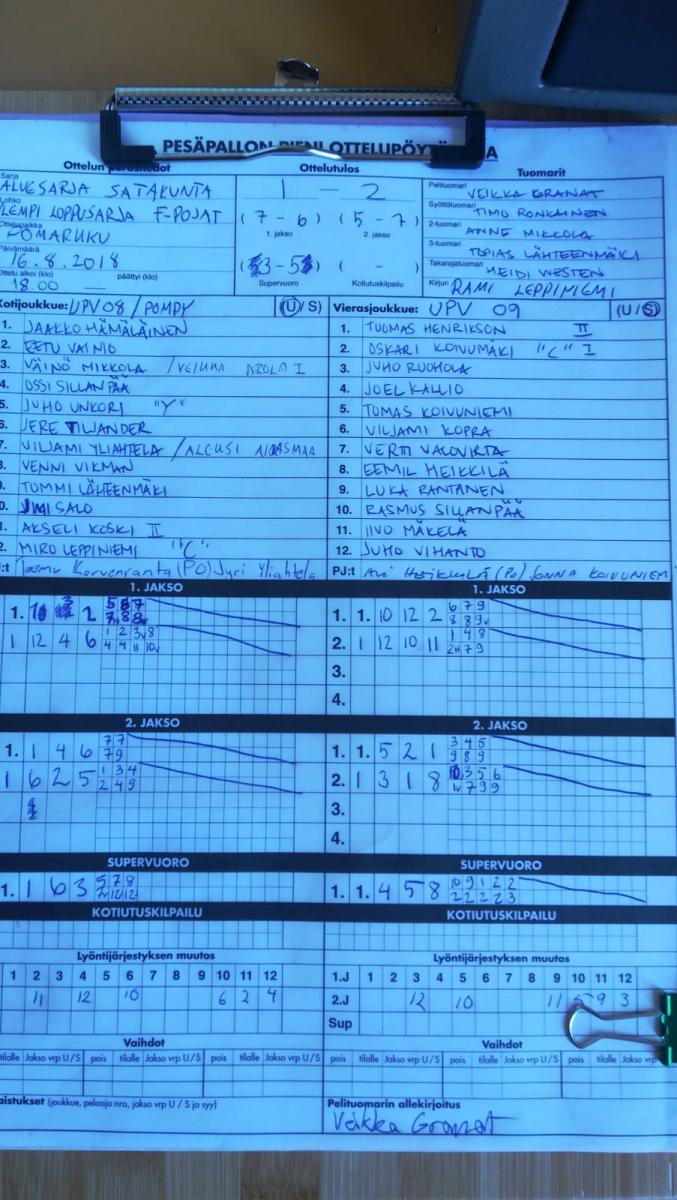 PESÄPALLON PIENI OTTELUPÖYTÄ A
Ottelun perustiedot
Ottelutulos
Tuomarit
Sarja
ALUESARJA SATAKUNTA
Lohko
LEMPI LOPPUSARJA F-POJAT
Ottelupaikka
POMARKKU
Päivämäärä
16.8.2018
Ottelu alkoi (klo) päättyi (klo)
18.00 —
1 — 2
(7 - 6) (5 - 7)
1. jakso 2. jakso
( 3 - 5 ) ( - )
Supervuoro Kotiutuskilpailu
Pelituomari VEIKKA GRANAT
Syöttötuomari TIMO RONKAINEN
2-tuomari ANNE MIKKOLA
3-tuomari TOPIAS LÄHTEENMÄKI
Takarajatuomari HEIDI WESTEN
Kirjuri RAMI LEPPINIEMI
Kotijoukkue: UPV 08 / POMPY (U/S)
1. JAAKKO HÄMÄLÄINEN
2. EETU VAINIO
3. VÄINÖ MIKKOLA
4. OSSI SILLANPÄÄ
5. JUHO UNKORI "Y"
6. JERE TILJANDER
7. VILJAMI YLIAHTELA /
8. VENNI VIKMAN
9. TOMMI LÄHTEENMÄKI
0. JIMI SALO
1. AKSELI KOSKI II
2. MIRO LEPPINIEMI "C"
J:t Teemu Korvenranta (PO) Jyri Yliahtela
Vierasjoukkue: UPV 09 (U/S)
1. TUOMAS HENRIKSON II
2. OSKARI KOIVUMÄKI "C" I
3. JUHO RUOHOLA
4. JOEL KALLIO
5. TOMAS KOIVUNIEMI
6. VILJAMI KOPRA
7. VERTI VALOVIRTA
8. EEMIL HEIKKILÄ
9. LUKA RANTANEN
10. RASMUS SILLANPÄÄ
11. IIVO MÄKELÄ
12. JUHO VIHANTO
PJ:t Heikkilä (PO) JONNA KOIVUNIEM
1. JAKSO
1. 2
1 12 4 6
1. JAKSO
1. 1. 10 12 2 6 7 9
8 8 9v
2. 1 12 10 11 1 4 8
7 9
3.
4.
2. JAKSO
1. 1 4 6 7 7
7 9
1 6 2 5 1 3 4
2 4 9
2. JAKSO
1. 1. 5 2 1 3 4 5
9 8 9
2. 1 3 1 8 3 5 6
7 9 9
3.
4.
SUPERVUORO
1. 1 6 3 5 7 8
12 12
SUPERVUORO
1. 1. 4 5 8 10 9 1 2 2
2 2 2 2 3
KOTIUTUSKILPAILU
KOTIUTUSKILPAILU
Lyöntijärjestyksen muutos
1 2 3 4 5 6 7 8 9 10 11 12
11 12 10 6 2 4
Lyöntijärjestyksen muutos
1.J 1 2 3 4 5 6 7 8 9 10 11 12
2.J 12 10 11 5 9 3
Sup
Vaihdot
tilalle Jakso vrp U/S pois tilalle Jakso vrp U/S pois tilalle Jakso vrp U/S
Vaihdot
pois tilalle Jakso vrp U/S pois tilalle Jakso vrp U/S pois tilalle Jakso vrp
aistukset (joukkue, pelaaja nro, jakso vrp U / S ja syy)
Pelituomarin allekirjoitus
Veikka Granat